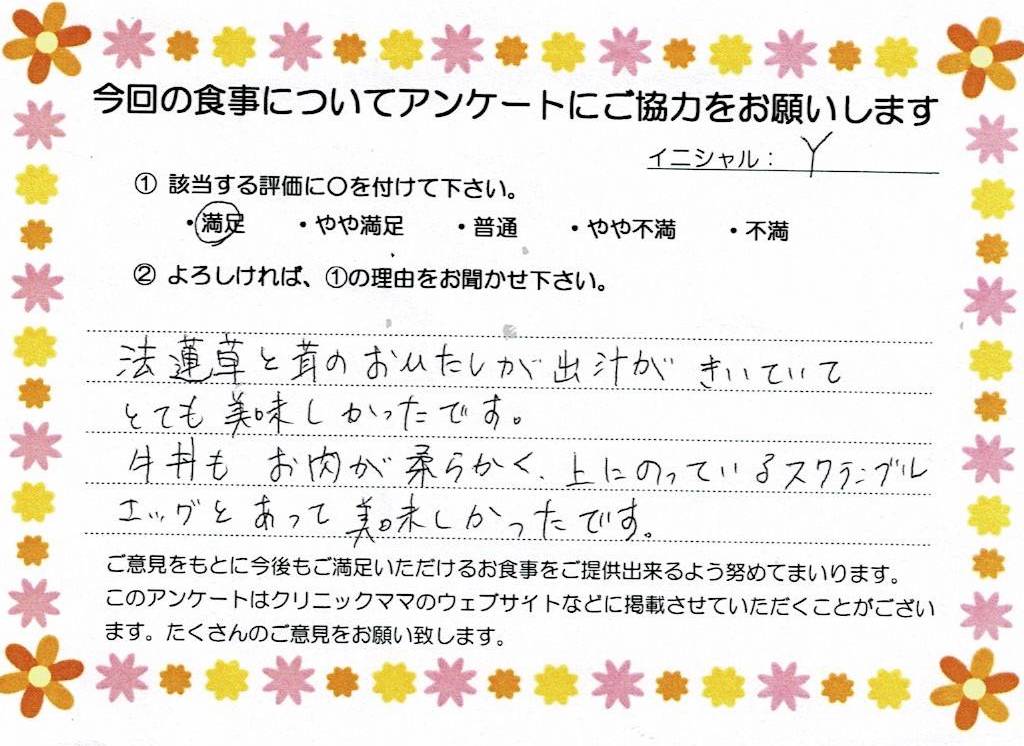 今回の食事についてアンケートにご協力をお願いします
イニシャル： Y
① 該当する評価に〇を付けて下さい。
・満足 ・やや満足 ・普通 ・やや不満 ・不満
② よろしければ、①の理由をお聞かせ下さい。
法蓮草と茸のおひたしが出汁がきいていて
とても美味しかったです。
牛丼も お肉が柔らかく、上にのっているスクランブル
エッグとあって美味しかったです。
ご意見をもとに今後もご満足いただけるお食事をご提供出来るよう努めてまいります。
このアンケートはクリニックママのウェブサイトなどに掲載させていただくことがござい
ます。たくさんのご意見をお願い致します。